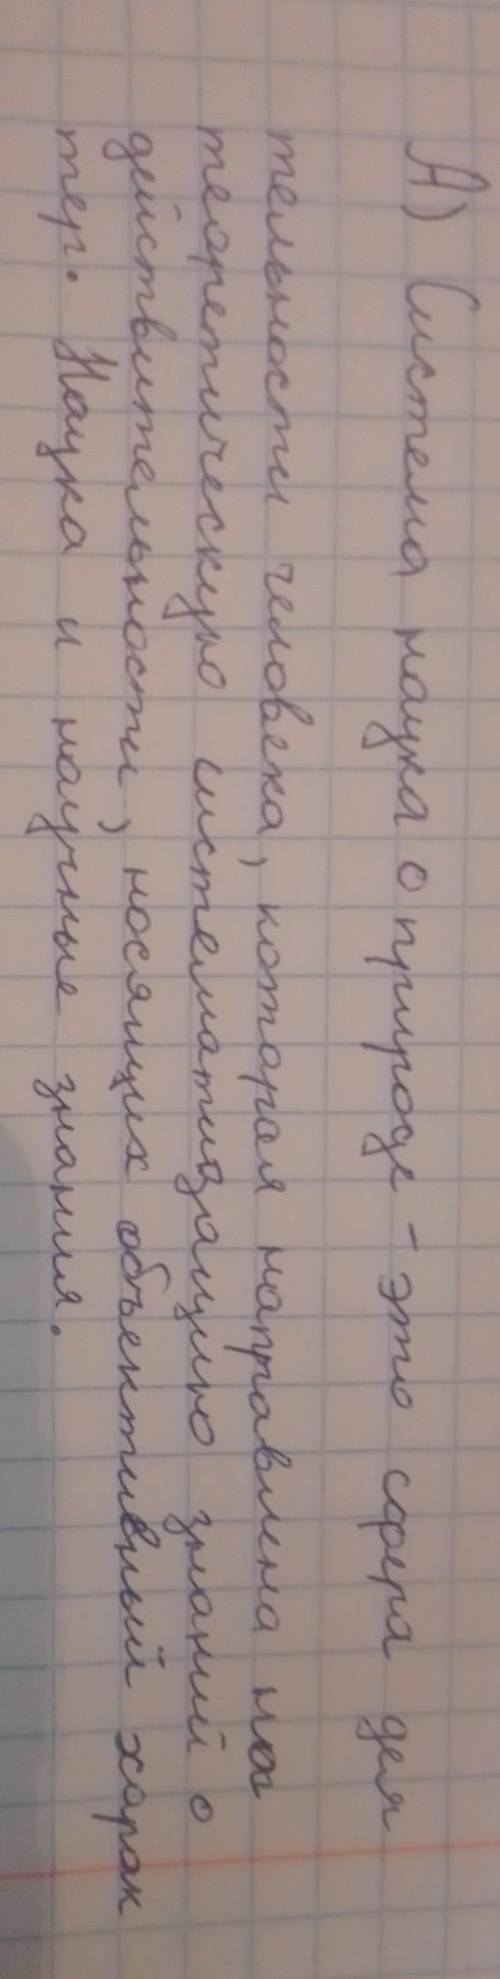 А) Система наука о природе - это сфера дея
тельности человека, которая направлена на
теоретическую систематизацию знаний о
действительности, носящих объективный харак
тер. Наука и научные знания.